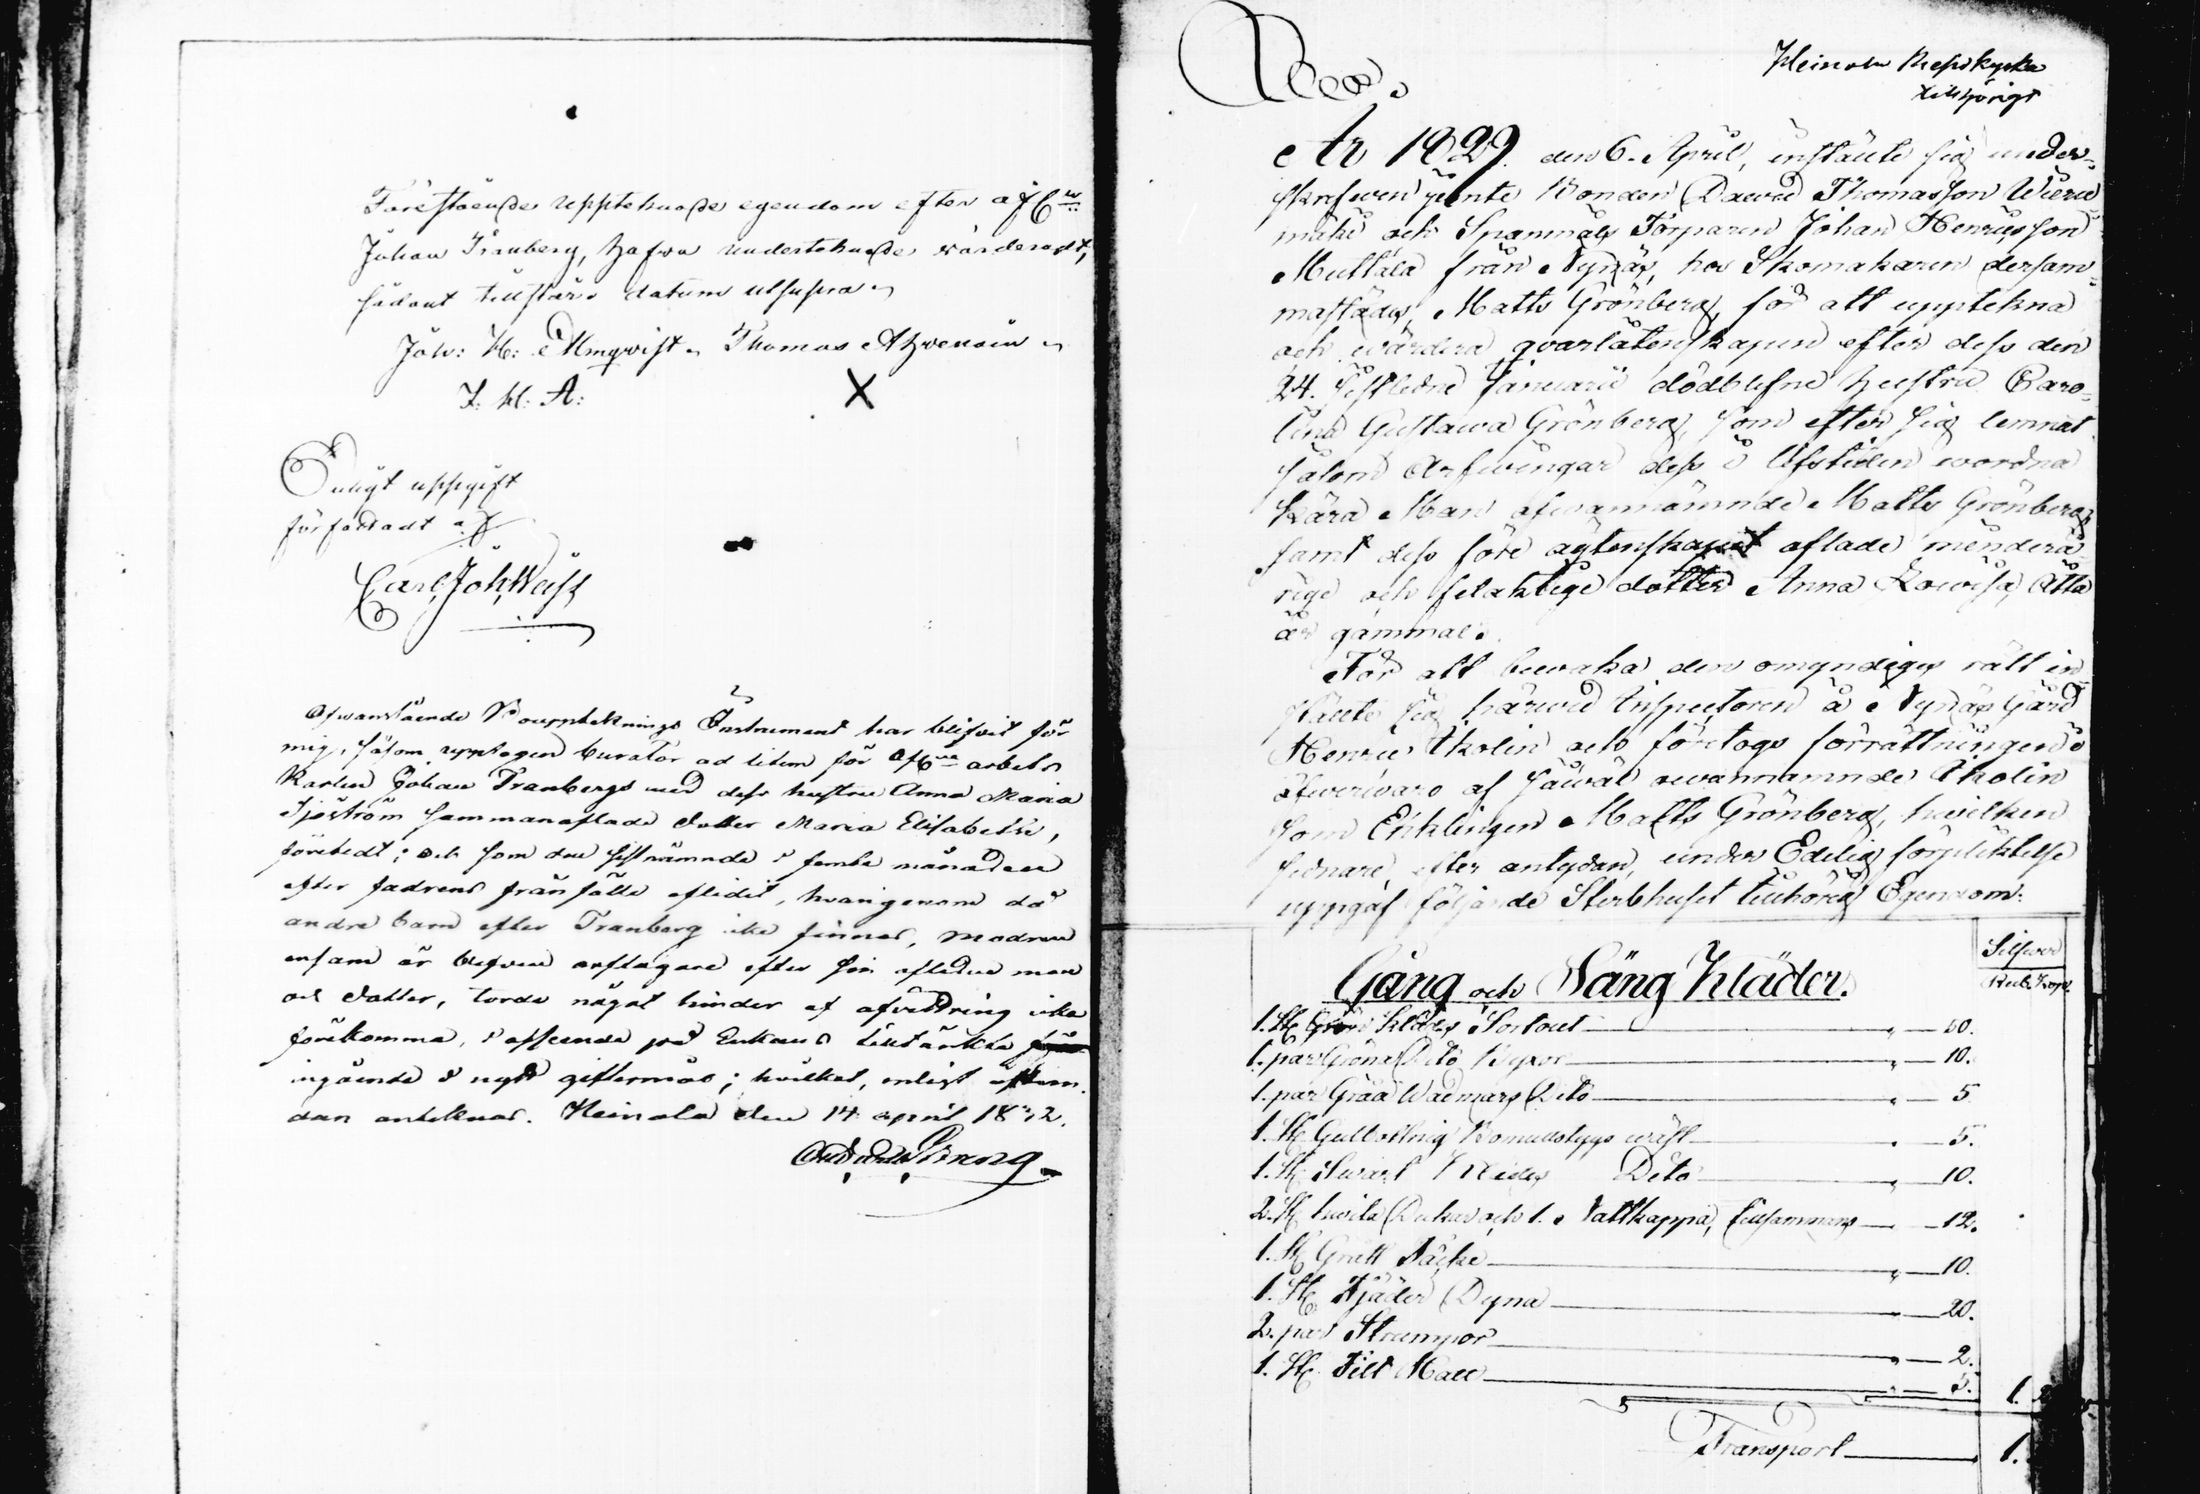 Förestående upptecknade egendom efter afl:ne
Johan Tranberg, hafva undertecknade värderadt,
sådant tillstår. datum utsupra
Joh: H: Almqvist. Thomas Ahvenain
J: H: A: X
Enligt uppgift
författadt af
Carl Joh Weiss
Ofvanstående Bouppteknings Instrument har blifvit för
mig, såsom upptagen Curator ad litem för Afl:ne arbets
Karlen Johan Tranbergs med dess hustru Anna Maria
Sjöström sammanaflade dotter Maria Elisabeth,
företedt; och som den sistnämnde i femte månaden
efter fadrens frånfälle aflidit, hvarigenom då
andre barn efter Tranberg icke finnes, modren
ensam är blifven arftagare efter sin aflidne man
och dotter, torde något hinder af afvittring icke
förekomma, i afseende på Enkans tilltänkta
ingående i nytt giftermål; hvilket, enligt
dan anteknas. Heinola den 14 april 1832.
Heinola
tillhörigt
År 1829. den 6. April, instälte sig under-
skrefven jemte Bonden David Thomasson
mäki och Spanmåls Torparen Johan Henricsson
Muttala från Nynäs, hos Skomakaren dersam-
mastädes, Matts Grönberg, för att upptekna
och värdera qvarlåtenskapen efter dess den
24. sistledne Januarii dödblefne hustru Caro-
lina Gustava Grönberg, som efter sig lemnat
såsom Arfvingar dess i Lifstiden vordna
kära Man ofvannämnde Matts Grönberg,
samt dess före ägtenskapet aflade minderå-
rige och dotter Anna Lovisa, Åtta
år gammal.
För att bevaka den omyndiges rätt in-
stälte sig härvid Inspectoren å Nynäs Gård
Henric Ikolin och företogs förrättningen i
öfvervaro af såväl ovannämnde Ikolin
som Enklingen Matts Grönberg, hvilken
sednare, efter antydan, under Edelig förpliktelse
uppgaf följande Sterbhuset tillhörig Egendom:
Silfver
Rub. Kop.
Gång och Säng Kläder.
1. St. Grön Klädes Sortout 50.
1. par Gröna Dito Byxor 10.
1. par Gråa Vadmars Dito 5
1. St. Gulbottnig Bomullstygs väst 5.
1. St. Svart Dito 10.
2. St. hvita Dukar och 1. Nattkappa, tillsammans 12.
1. St. Gritt Täcke 10.
1. St. Fjäder Dyna 20.
2. par Strumpor 2.
1. St. Filt Hatt 5. 1.
Transport 1.